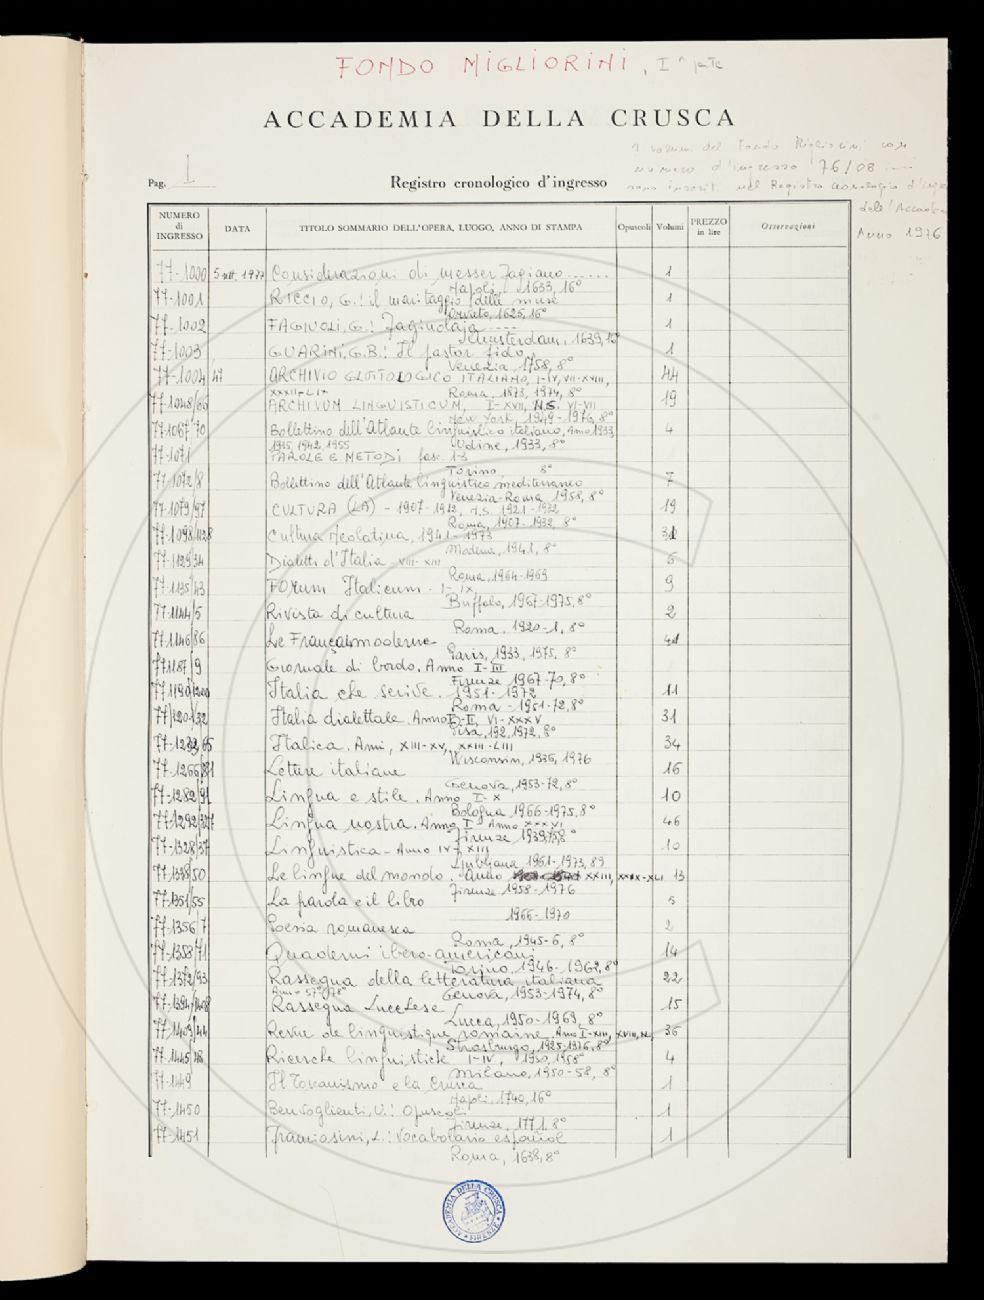 FONDO MIGLIORINI, Iª parte
ACCADEMIA DELLA CRUSCA
I volumi del Fondo Migliorini con
numero d'ingresso '76/08
sono inseriti nel Registro cronologico d'ingresso
dell'Accademia
Anno 1976
Pag. 1
Registro cronologico d'ingresso
NUMERO di INGRESSO DATA TITOLO SOMMARIO DELL'OPERA, LUOGO, ANNO DI STAMPA Opuscoli Volumi PREZZO in lire Osservazioni
77-1000 5 sett. 1977 Considerazioni di messer Fagiano...... 1
Napoli, 1633, 16°
77-1001 RICCIO, G.: il maritaggio delle muse 1
Orvieto, 1625, 16°
77-1002 FAGIUOLI, G.: Fagiuolaja ---- 1
Amsterdam, 1639, 16°
77-1003 GUARINI, G.B.: Il pastor fido, 1
Venezia, 1758, 8°
77-1004/47 ARCHIVIO GLOTTOLOGICO ITALIANO, I-IV, VII-XVIII, 44
XXXII-LIX Roma, 1873, 1974, 8°
77-1048/66 ARCHIVUM LINGUISTICUM, I-XVII, N.S. VI-VII 19
New York, 1949-1976, 8°
77-1067/70 Bollettino dell'Atlante linguistico italiano, Anno 1933, 4
1935, 1942, 1955 Udine, 1933, 8°
77-1071 PAROLE E METODI fasc. 1-3
Torino, 8°
77-1072/8 Bollettino dell'Atlante linguistico mediterraneo 7
Venezia-Roma 1958, 8°
77-1079/97 CULTURA (LA) - 1907-1912, N.S. 1921-1932 19
Roma, 1907-1932, 8°
77-1098/1128 Cultura Neolatina, 1941-1973 31
Modena, 1941, 8°
77-1129/34 Dialetti d'Italia - VIII-XIII 6
Roma, 1964-1969
77-1135/43 FORUM Italicum. I-IX, 9
Buffalo, 1967-1975, 8°
77-1144/5 Rivista di cultura 2
Roma. 1920-1, 8°
77-1146/86 Le Français moderne 41
Paris, 1933, 1975, 8°
77-1187/9 Giornale di bordo. Anno I-III
Firenze 1967-70, 8°
77-1190/1200 Italia che scrive. 1951-1972 11
Roma - 1951-72, 8°
77-1201/32 Italia dialettale. Anno I-II, VI-XXXV 31
Pisa, 192, 1972, 8°
77-1232/65 Italica. Anni, XIII-XV, XXIII-LIII 34
Wisconsin, 1936, 1976
77-1266/81 Letture italiane 16
Genova, 1953-72, 8°
77-1282/91 Lingua e stile. Anno I-X 10
Bologna 1966-1975, 8°
77-1292/327 Lingua nostra. Anno I-Anno XXXVI 46
Firenze 1939, 75, 8°
77-1328/37 Linguistica - Anno IV-XIII 10
Ljubljana, 1961-1973, 8°
77-1338/50 Le lingue del mondo. Anno XXIII, XXIX-XLI 13
Firenze 1958-1976
77-1351/55 La parola e il libro 5
1966-1970
77-1356/7 Poesia romanesca 2
Roma, 1945-6, 8°
77-1358/71 Quaderni ibero-americani 14
Torino, 1946-1962, 8°
77-1372/93 Rassegna della letteratura italiana 22
Anni 57°/78° Genova, 1953-1974, 8°
77-1394/1408 Rassegna Lucchese 15
Lucca, 1950-1969, 8°
77-1409/44 Revue de linguistique romaine, Anno I-XIII, XVIII, 36
Strasburgo, 1925-1976, 8°
77-1445/48 Ricerche linguistiche I-IV, 1950, 1958° 4
Milano, 1950-58, 8°
77-1449 Il Toscanismo e la Crusca 1
Napoli, 1740, 16°
77-1450 Benvoglienti, U.: Opuscoli 1
Firenze, 1771, 8°
77-1451 Franciosini, L.: Vocabolario español 1
Roma, 1638, 8°
ACCADEMIA DELLA CRUSCA
FIRENZE